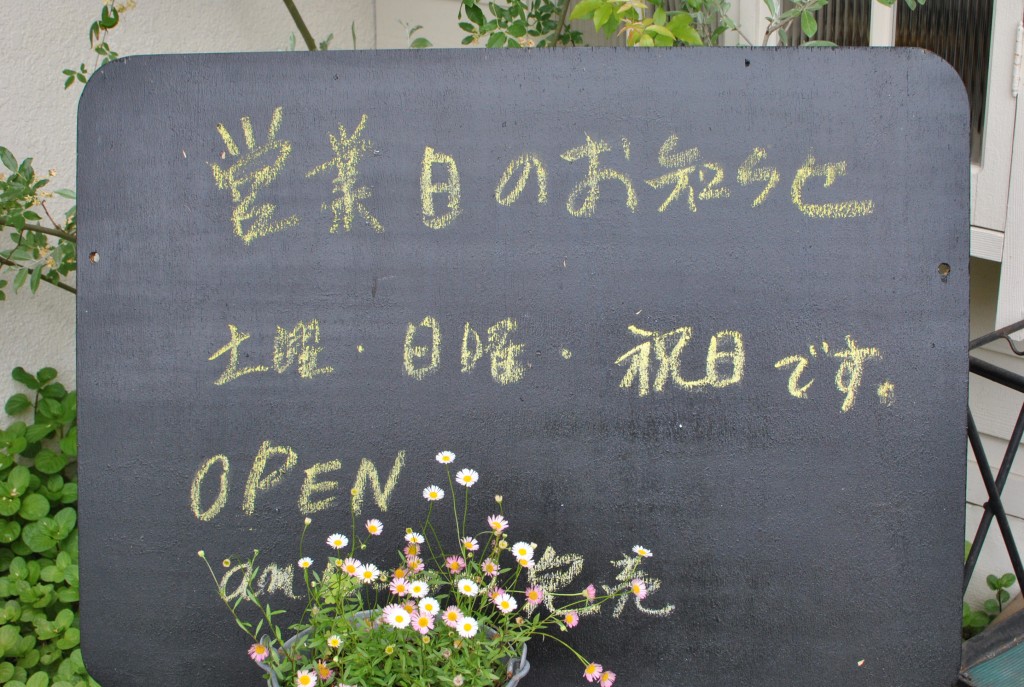 営業日のお知らせ
土曜・日曜・祝日です。
OPEN
am 完売